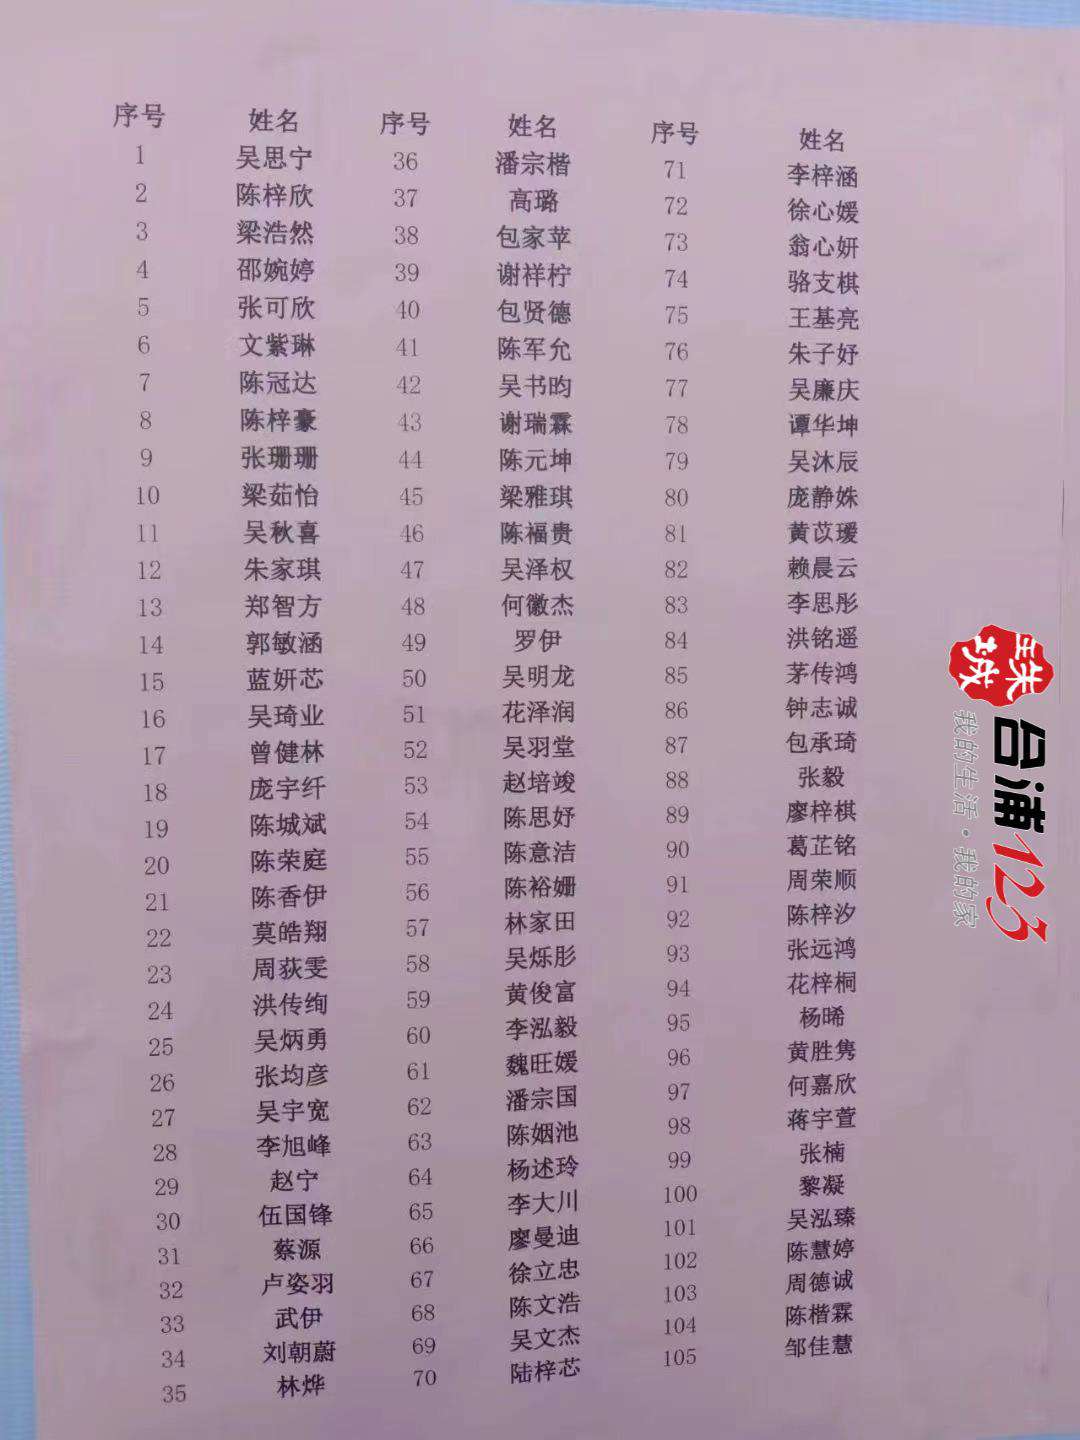 序号 姓名 序号 姓名 序号 姓名
1 吴思宁 36 潘宗楷 71 李梓涵
2 陈梓欣 37 高璐 72 徐心媛
3 梁浩然 38 包家苹 73 翁心妍
4 邵婉婷 39 谢祥柠 74 骆支棋
5 张可欣 40 包贤德 75 王基亮
6 文紫琳 41 陈军允 76 朱子妤
7 陈冠达 42 吴书昀 77 吴廉庆
8 陈梓豪 43 谢瑞霖 78 谭华坤
9 张珊珊 44 陈元坤 79 吴沐辰
10 梁茹怡 45 梁雅琪 80 庞静姝
11 吴秋喜 46 陈福贵 81 黄苡瑷
12 朱家琪 47 吴泽权 82 赖晨云
13 郑智方 48 何徽杰 83 李思彤
14 郭敏涵 49 罗伊 84 洪铭遥
15 蓝妍芯 50 吴明龙 85 茅传鸿
16 吴琦业 51 花泽润 86 钟志诚
17 曾健林 52 吴羽堂 87 包承琦
18 庞宇纤 53 赵培竣 88 张毅
19 陈城斌 54 陈思妤 89 廖梓棋
20 陈荣庭 55 陈意洁 90 葛芷铭
21 陈香伊 56 陈裕姗 91 周荣顺
22 莫皓翔 57 林家田 92 陈梓汐
23 周荻雯 58 吴烁彤 93 张远鸿
24 洪传绚 59 黄俊富 94 花梓桐
25 吴炳勇 60 李泓毅 95 杨晞
26 张均彦 61 魏旺媛 96 黄胜隽
27 吴宇宽 62 潘宗国 97 何嘉欣
28 李旭峰 63 陈姻池 98 蒋宇萱
29 赵宁 64 杨述玲 99 张楠
30 伍国锋 65 李大川 100 黎凝
31 蔡源 66 廖曼迪 101 吴泓臻
32 卢姿羽 67 徐立忠 102 陈慧婷
33 武伊 68 陈文浩 103 周德诚
34 刘朝蔚 69 吴文杰 104 陈楷霖
35 林烨 70 陆梓芯 105 邹佳慧
珠城
合浦123
我的生活·我的家